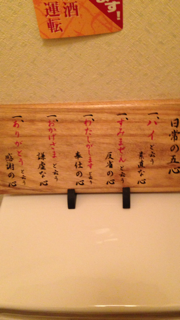 酒
運転
ます!
日常の五心
一、ハイ という
素直な心
一、すみません という
反省の心
一、わたしがします という
奉仕の心
一、おかげさま という
謙虚な心
一、ありがとう という
感謝の心